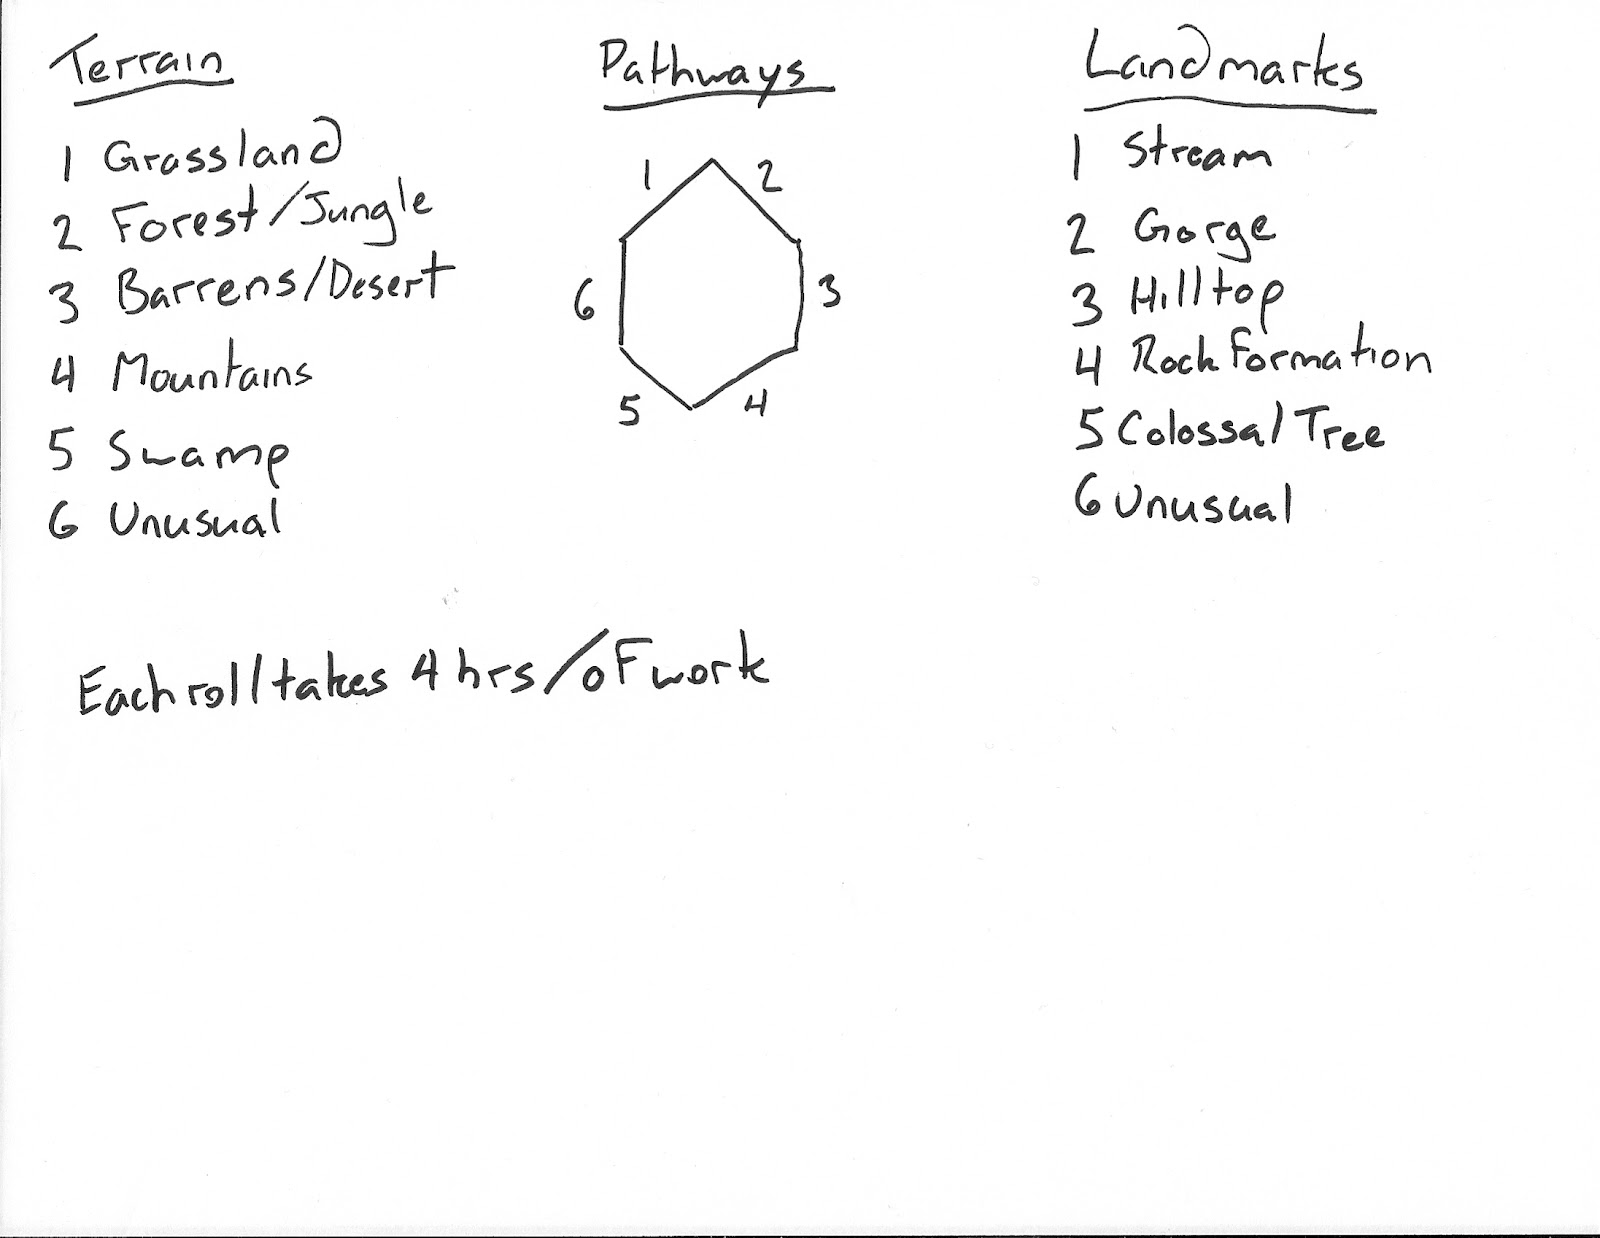 Terrain
1 Grassland
2 Forest/Jungle
3 Barrens/Desert
4 Mountains
5 Swamp
6 Unusual
Pathways
1
2
3
4
5
6
Landmarks
1 Stream
2 Gorge
3 Hilltop
4 Rock Formation
5 Colossal Tree
6 Unusual
Each roll takes 4 hrs/of work